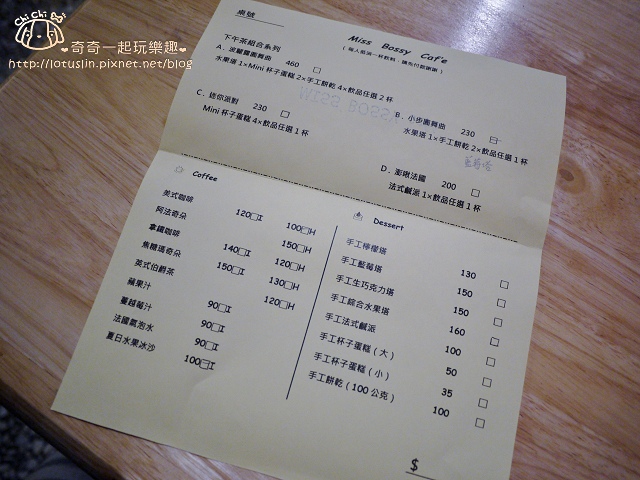 Chi Chi
❤奇奇一起玩樂趣❤
http://lotuslin.pixnet.net/blog
桌號
Miss Bossy Caf'e
下午茶組合系列
A. 波麗露圓舞曲 460 □
水果塔 1×Mini 杯子蛋糕 2×手工餅乾 4×飲品任選 2 杯
B. 小步圓舞曲 230 □
水果塔 1×手工餅乾 2×飲品任選 1 杯
藍莓塔
C. 迷你派對 230 □
Mini 杯子蛋糕 4×飲品任選 1 杯
D. 澎啾法國 200 □
法式鹹派 1×飲品任選 1 杯
Coffee
美式咖啡 120□I 100□H
阿法奇朵
拿鐵咖啡 140□I 150□H
焦糖瑪奇朵 150□I 120□H
英式伯爵茶 130□H
蘋果汁 90□I 120□H
蔓越莓汁 90□I
法國氣泡水 90□I
夏日水果冰沙 100□I
Dessert
手工檸檬塔 130 □
手工藍莓塔 150 □
手工生巧克力塔 150 □
手工綜合水果塔 160 □
手工法式鹹派 100 □
手工杯子蛋糕(大) 50 □
手工杯子蛋糕(小) 35 □
手工餅乾(100 公克) 100 □
$